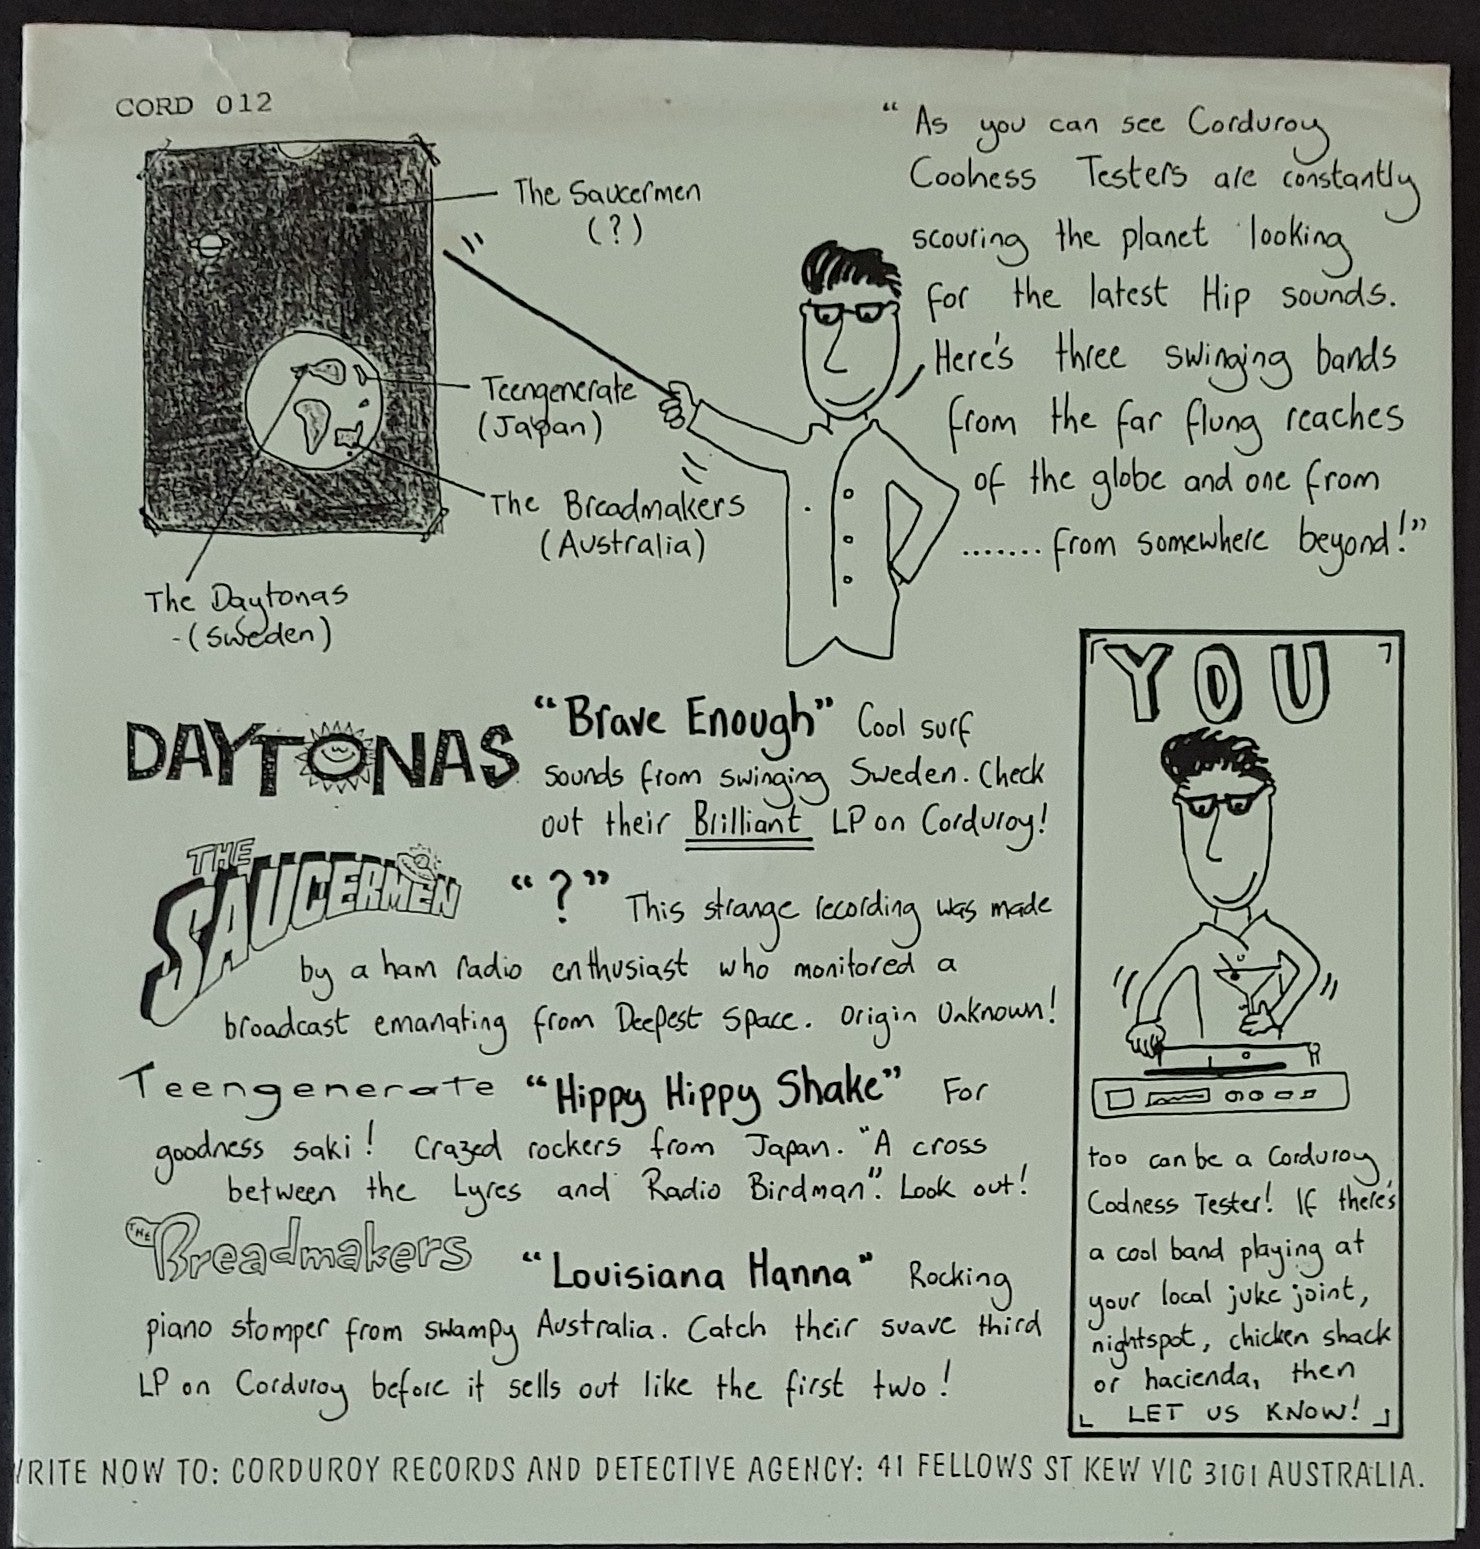 CORD 012
The Saucermen
(?)
Teengenerate
(Japan)
The Breadmakers
(Australia)
The Daytonas
-(Sweden)
“ As you can see Corduroy
Coolness Testers are constantly
scouring the planet looking
for the latest Hip sounds.
Here's three swinging bands
from the far flung reaches
of the globe and one from
....... from somewhere beyond!”
DAYTONAS “Brave Enough” Cool surf
sounds from swinging Sweden. Check
out their Brilliant LP on Corduroy!
THE
SAUCERMEN “?” This strange recording was made
by a ham radio enthusiast who monitored a
broadcast emanating from Deepest Space. Origin Unknown!
Teengenerate “Hippy Hippy Shake” For
goodness saki! Crazed rockers from Japan. “A cross
between the Lyres and Radio Birdman”. Look out!
THE Breadmakers “Louisiana Hanna” Rocking
piano stomper from swampy Australia. Catch their suave third
LP on Corduroy before it sells out like the first two!
YOU
too can be a Corduroy
Coolness Tester! If there's
a cool band playing at
your local juke joint,
nightspot, chicken shack
or hacienda, then
LET US KNOW!
WRITE NOW TO: CORDUROY RECORDS AND DETECTIVE AGENCY: 41 FELLOWS ST KEW VIC 3101 AUSTRALIA.